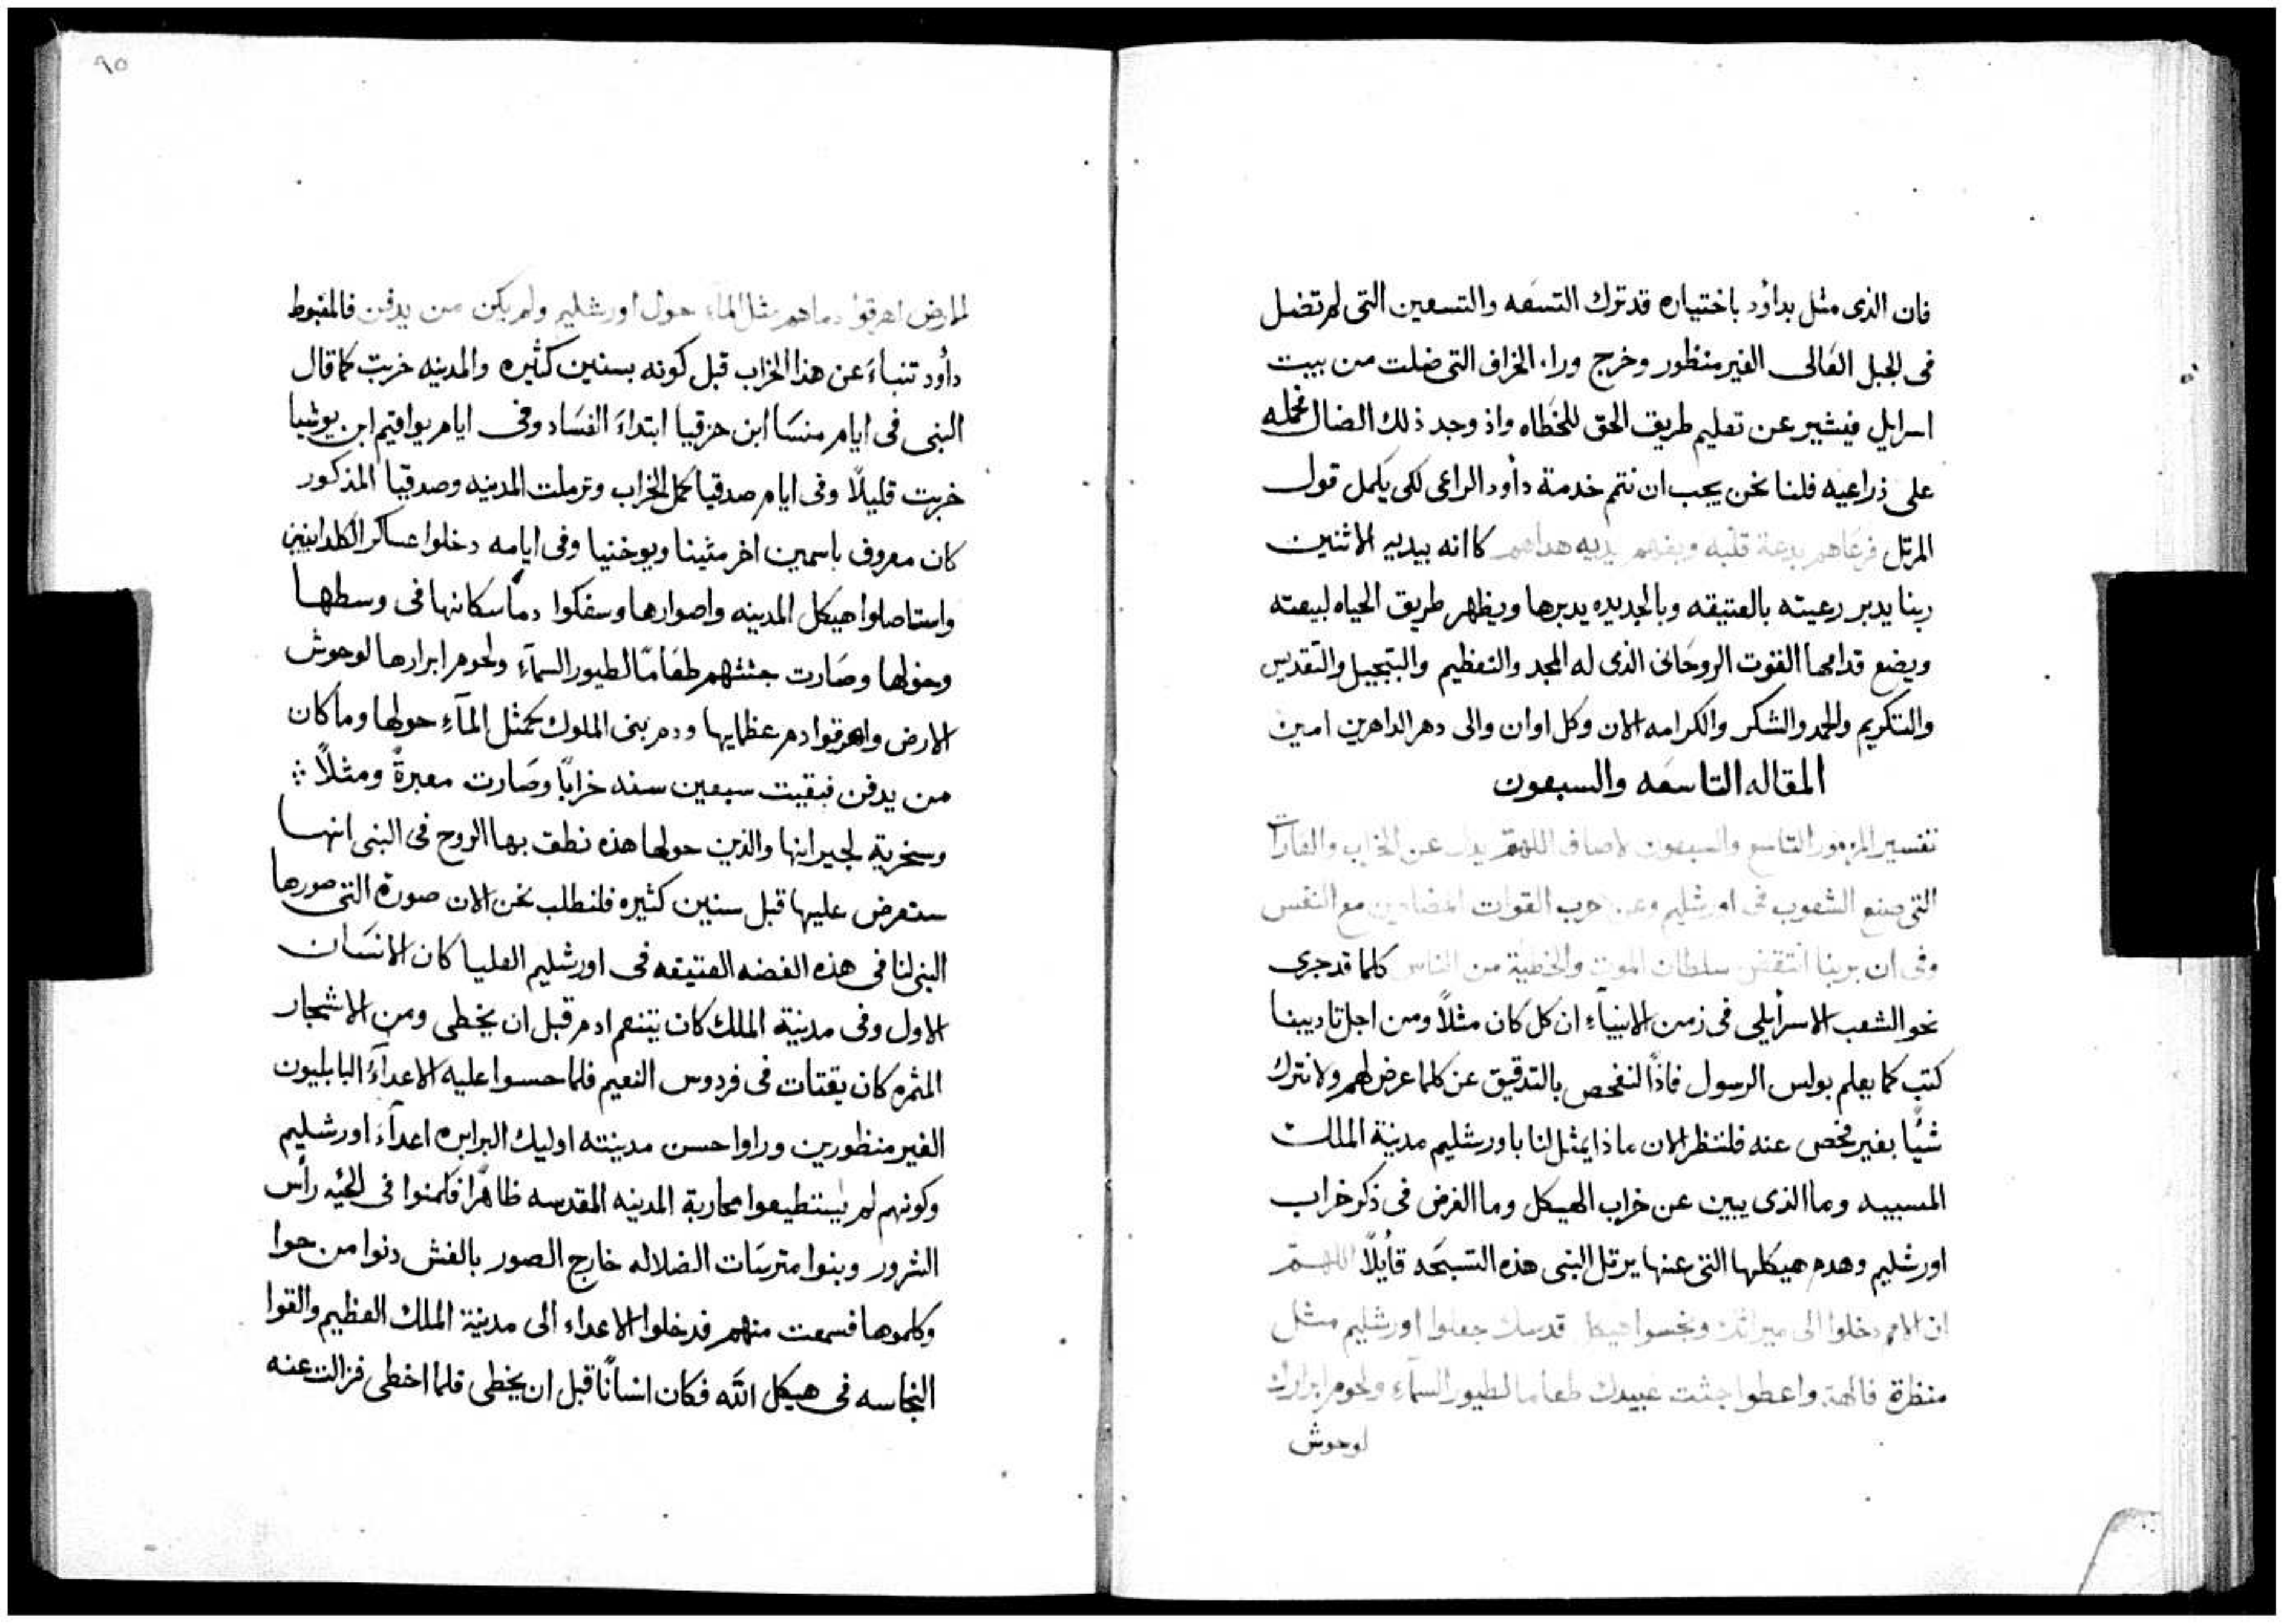 فان الذى مثل بداوُد باختياره قد ترك التسعه والتسعين التى لم تضل
فى الجبل العَالى الغير منظور وخرج ورا. الخراف التى ضلت من بيت
اسرايل فيشير عن تعليم طريق الحق للخطاه واذ وجد ذلك الضال فحمله
على ذراعيه فلنا نحن يجب ان نتم خدمة داود الراعى لكى يكمل قول
المرتل فرعَاهم بدعة قلبه وبفهم يديه هداهم كاانه بيديه الاثنين
ربنا يدبر رعيته بالعتيقه وبالجديده يدبرها ويظهر طريق الحياه لبيعته
ويضع قدامها القوت الروحَانى الذى له المجد والتعظيم والتبجيل والتقديس
والتكريم والحمد والشكر والكرامه الان وكل اوان والى دهر الداهرين امين
المقاله التاسعَه والسبعون
تفسير المزمور التاسع والسبعون لاصاف اللهم يدل عن الخراب والغارات
التى صنع الشعوب فى اورشليم وعن حرب القوات مع النفس
وفى ان بربنا انتقض سلطان الموت والخطية من الناس كلما قد جرى
نحو الشعب الاسرأيلى فى زمن الانبيآء ان كل كان مثلاً ومن اجل تاديبنا
كتب كما يعلم بولس الرسول فاذًا لنفحص بالتدقيق عن كلما عرض لهم ولا نترك
شيًا بغير فحص عنه فلننظر الان ماذا يمثل لنا باورشليم مدينة الملك
المسبيه وما الذى يبين عن خراب الهيكل وما الغرض فى ذكر خراب
اورشليم وهدم هيكلها التى عنها يرتل النبى هذه التسبحَه قايلاً اللهم
ان الامم دخلوا الى ميراثك ونجسوا هيكل قدسك جعلوا اورشليم مثل
منظرة فاكهة. واعطوا جثث عبيدك طعاما لطيور السمآء ولحوم ابرارك
لوحوش
٩٥
الارض اهرقوا دماهم مثل المآء حول اورشليم ولم يكن من يدفن فالمغبوط
دأود تنباءَ عن هذا الخراب قبل كونه بسنين كثيره والمدينه خربت كما قال
النبى فى ايام منسَا ابن حزقيا ابتداءَ الفسَاد وفى ايام يواقيم ابن يوشيا
خربت قليلاً وفى ايام صدقيا كمل الخراب وترملت المدينه وصدقيا المذكور
كان معروف باسمين اخر متينا ويوخنيا وفى ايامه دخلوا عساكر الكلدانيين
واستاصلوا هيكل المدينه واصوارها وسفكوا دمأ سكانها فى وسطها
وحولها وصَارت جثثهم طعَامًا لطيور السمآء ولحوم ابرارها لوحوش
الارض واهرقوا دم عظمايها ودم بنى الملوك كمثل المآء حولها وما كان
من يدفن فبقيت سبعين سنه خرابًا وصَارت معيرةً ومثلاً ؛
وسخرية لجيرانها والذين حولها هذه نطق بها الروح فى النبى انها
ستعرض عليها قبل سنين كثيره فلنطلب نحن الان صورة التى صورها
النبى لنا فى هذه الغضه العتيقه فى اورشليم العليا كان الانسَان
الاول وفى مدينة الملك كان يتنعم ادم قبل ان يخطى ومن الاشجار
المثمره كان يقتات فى فردوس النعيم فلما حسوا عليه الاعدآءُ البابليون
الغير منظورين وراوا حسن مدينته اوليك البرابره اعدآءَ اورشليم
وكونهم لم يستطيعوا محاربة المدينه المقدسه ظاهرًا فكمنوا فى الحيّه رأس
الشرور وبنوا مترسَات الضلاله خارج الصور بالغش دنوا من حوا
وكلموها فسمعت منهم فدخلوا الاعداء الى مدينة الملك العظيم والقوا
النجاسه فى هيكل اللّه فكان انسانًا قبل ان يخطى فلما اخطى فزالت عنه